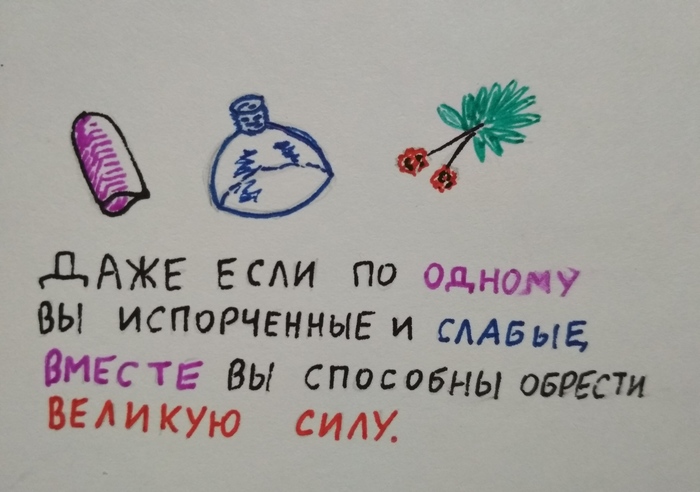 ДАЖЕ ЕСЛИ ПО ОДНОМУ
ВЫ ИСПОРЧЕННЫЕ И СЛАБЫЕ,
ВМЕСТЕ ВЫ СПОСОБНЫ ОБРЕСТИ
ВЕЛИКУЮ СИЛУ.